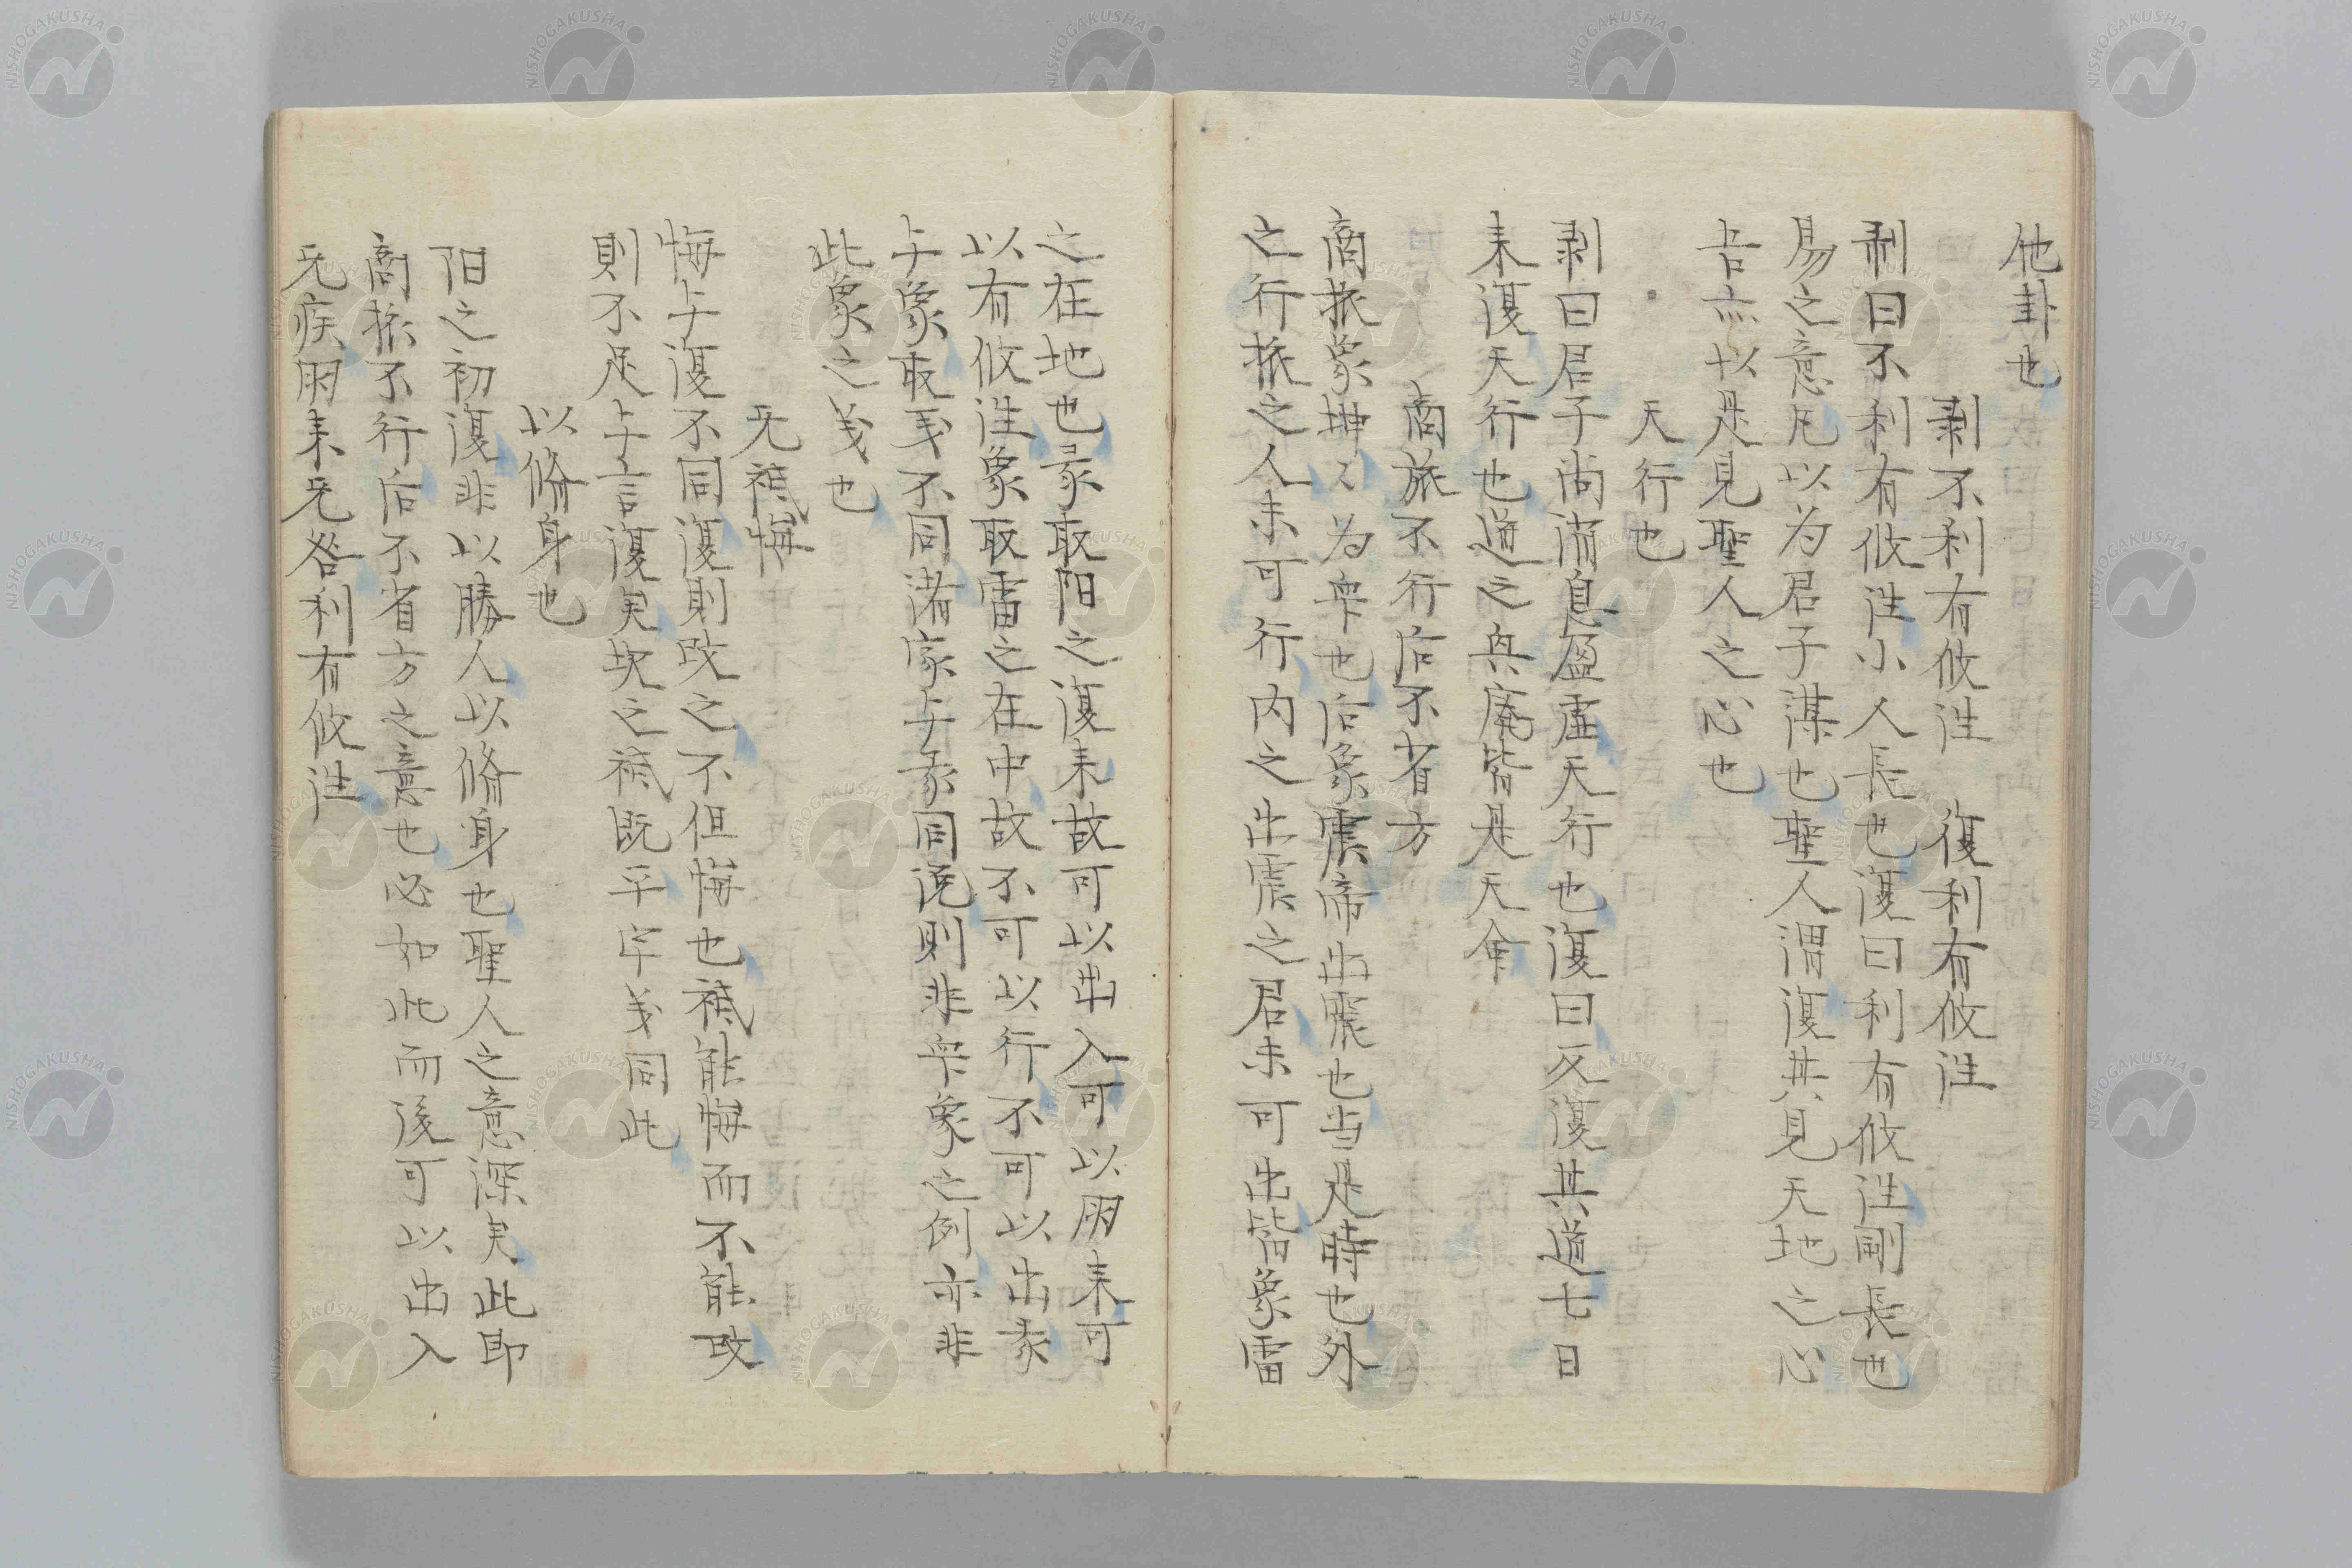 他卦也
剥不利有攸往　復利有攸往
剥曰不利有攸往小人長也復曰利有攸往剛長也
易之意凡以为君子謀也聖人謂復其見天地之心
吉亦以是見聖人之心也
天行也
剥曰君子尚消息盈虚天行也復曰反復其道七日
来復天行也道之興廃皆是天命
商旅不行后不省方
商旅象坤〻为衆也后象震帝出震也当是時也外
之行旅之人未可行内之出震之君未可出皆象雷
之在地也彖取阳之復来故可以出入可以朋来可
以有攸往象取雷之在中故不可以行不可以出彖
与象取义不同諸家与彖同说則非衆象之例亦非
此象之义也
无祗悔
悔与復不同復則改之不但悔也祗能悔而不能改
則不足与言復矣坎之祗既平字义同此
以脩身也
阳之初復非以勝人以脩身也聖人之意深矣此即
商旅不行后不省方之意也必如此而後可以出入
无疾朋来无咎利有攸往
NISHOGAKUSHA